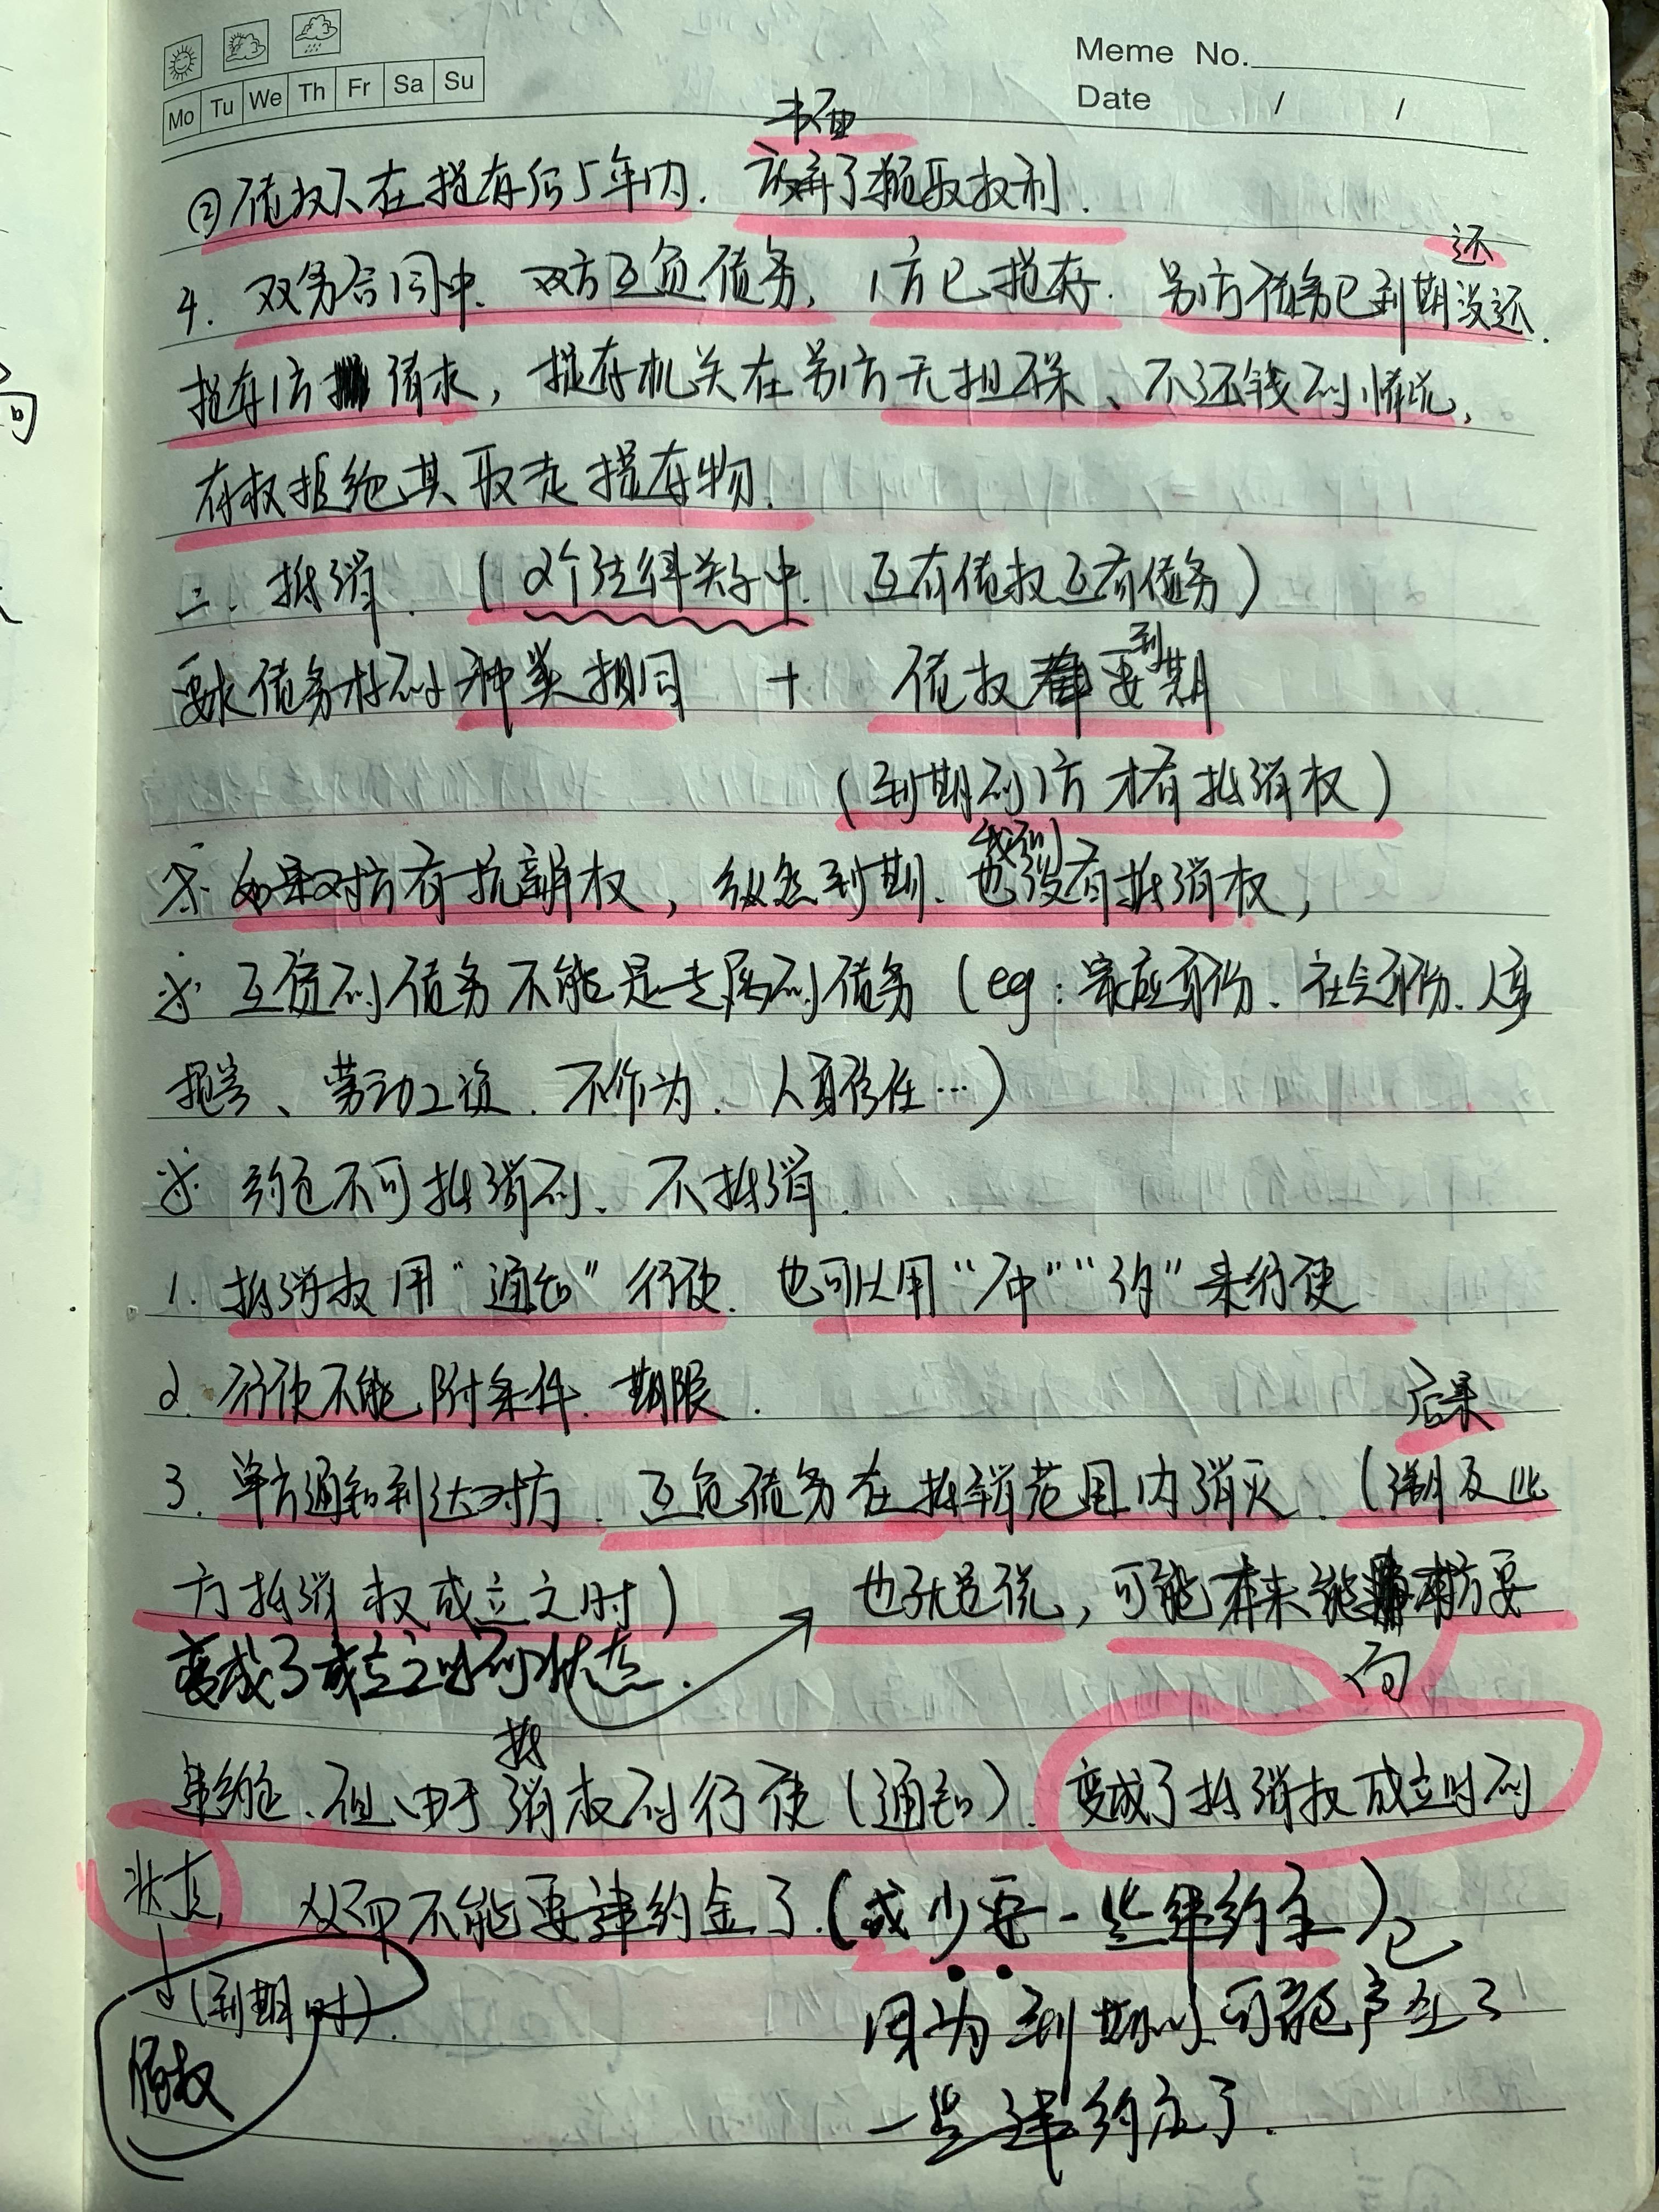 Mo Tu We Th Fr Sa Su
Meme No.
Date / /
书面
②债权人在提存后5年内.放弃了领取权利.
还
4.双务合同中.双方互负债务,1方已提存.另1方债务已到期没还.
提存1方请求,提存机关在另1方无担保、不还钱的情况,
有权拒绝其取走提存物.
二.抵消.(2个法律关系中.互有债权互有债务)
要求债务标的种类相同 + 债权都要到期
(到期的1方才有抵消权)
我们
※如果对方有抗辩权,纵然到期、也没有抵消权,
※互负的债务不能是专属的债务(eg:家庭身份、社会身份、人身
损害、劳动工资.不作为.人身信任…)
※约定不可抵消的、不抵消.
1.抵消权用“通知”行使.也可以用“冲”“约”来行使
2.行使不能附条件.期限.
后果
3.单方通知到达对方.互负债务在抵销范围内消灭.(溯及此
方抵消权成立之时) 也就是说,可能本来能本方要
变成了成立之时的状态.
向
抵
违约金、但由于消权的行使(通知).变成了抵消权成立时的
状态,从而不能要违约金了.(或少要一些违约金)
(到期时).
债权
因为到期时可能产生了
一些违约金了.